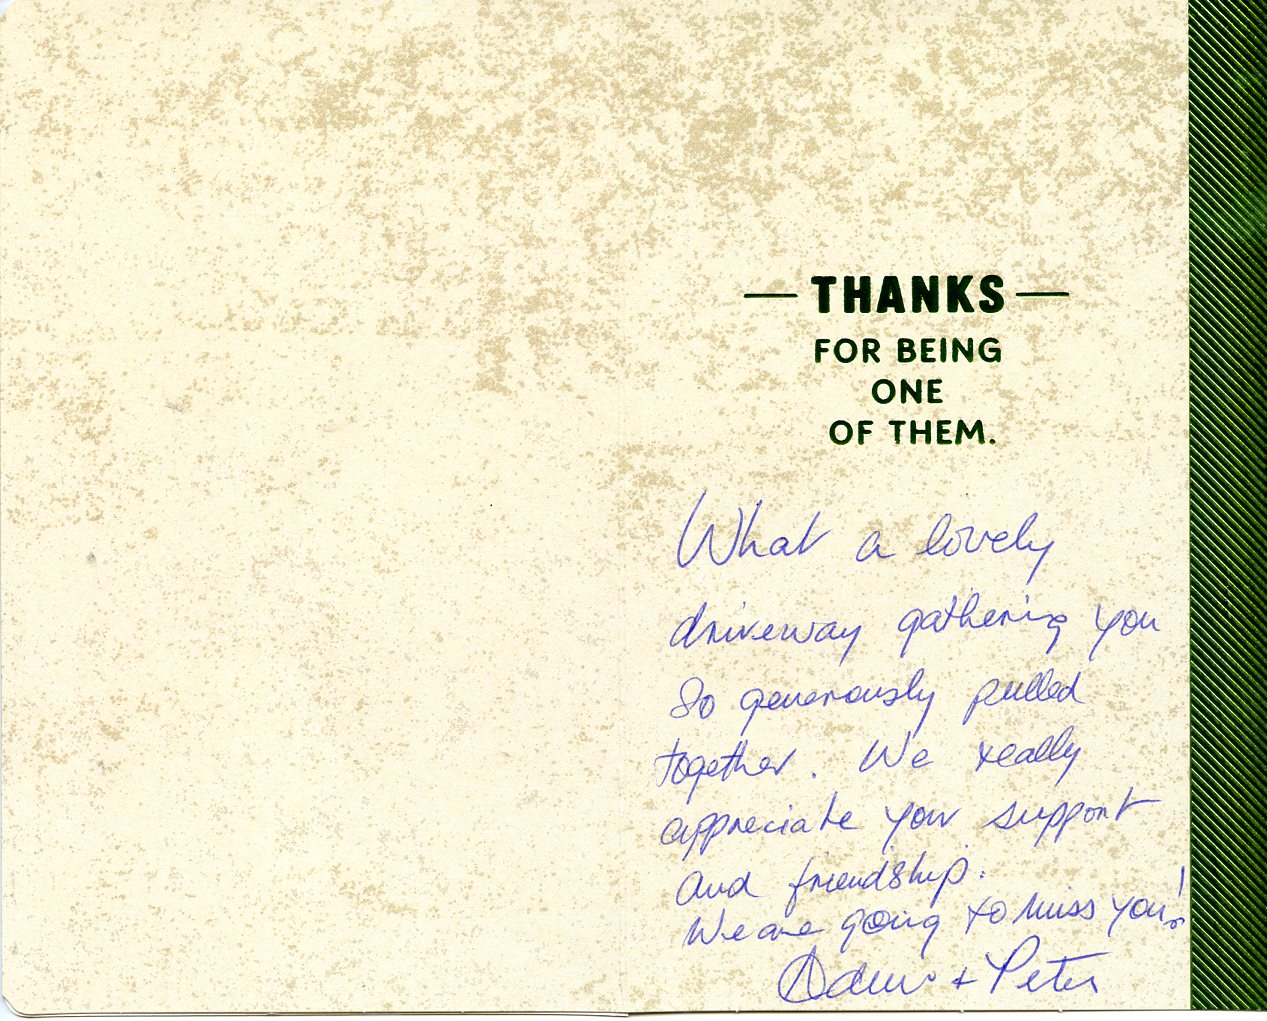 THANKS
FOR BEING
ONE
OF THEM.
What a lovely
driveway gathering you
so generously pulled
together. We really
appreciate your support
and friendship.
We are going to miss you!
+ Peter